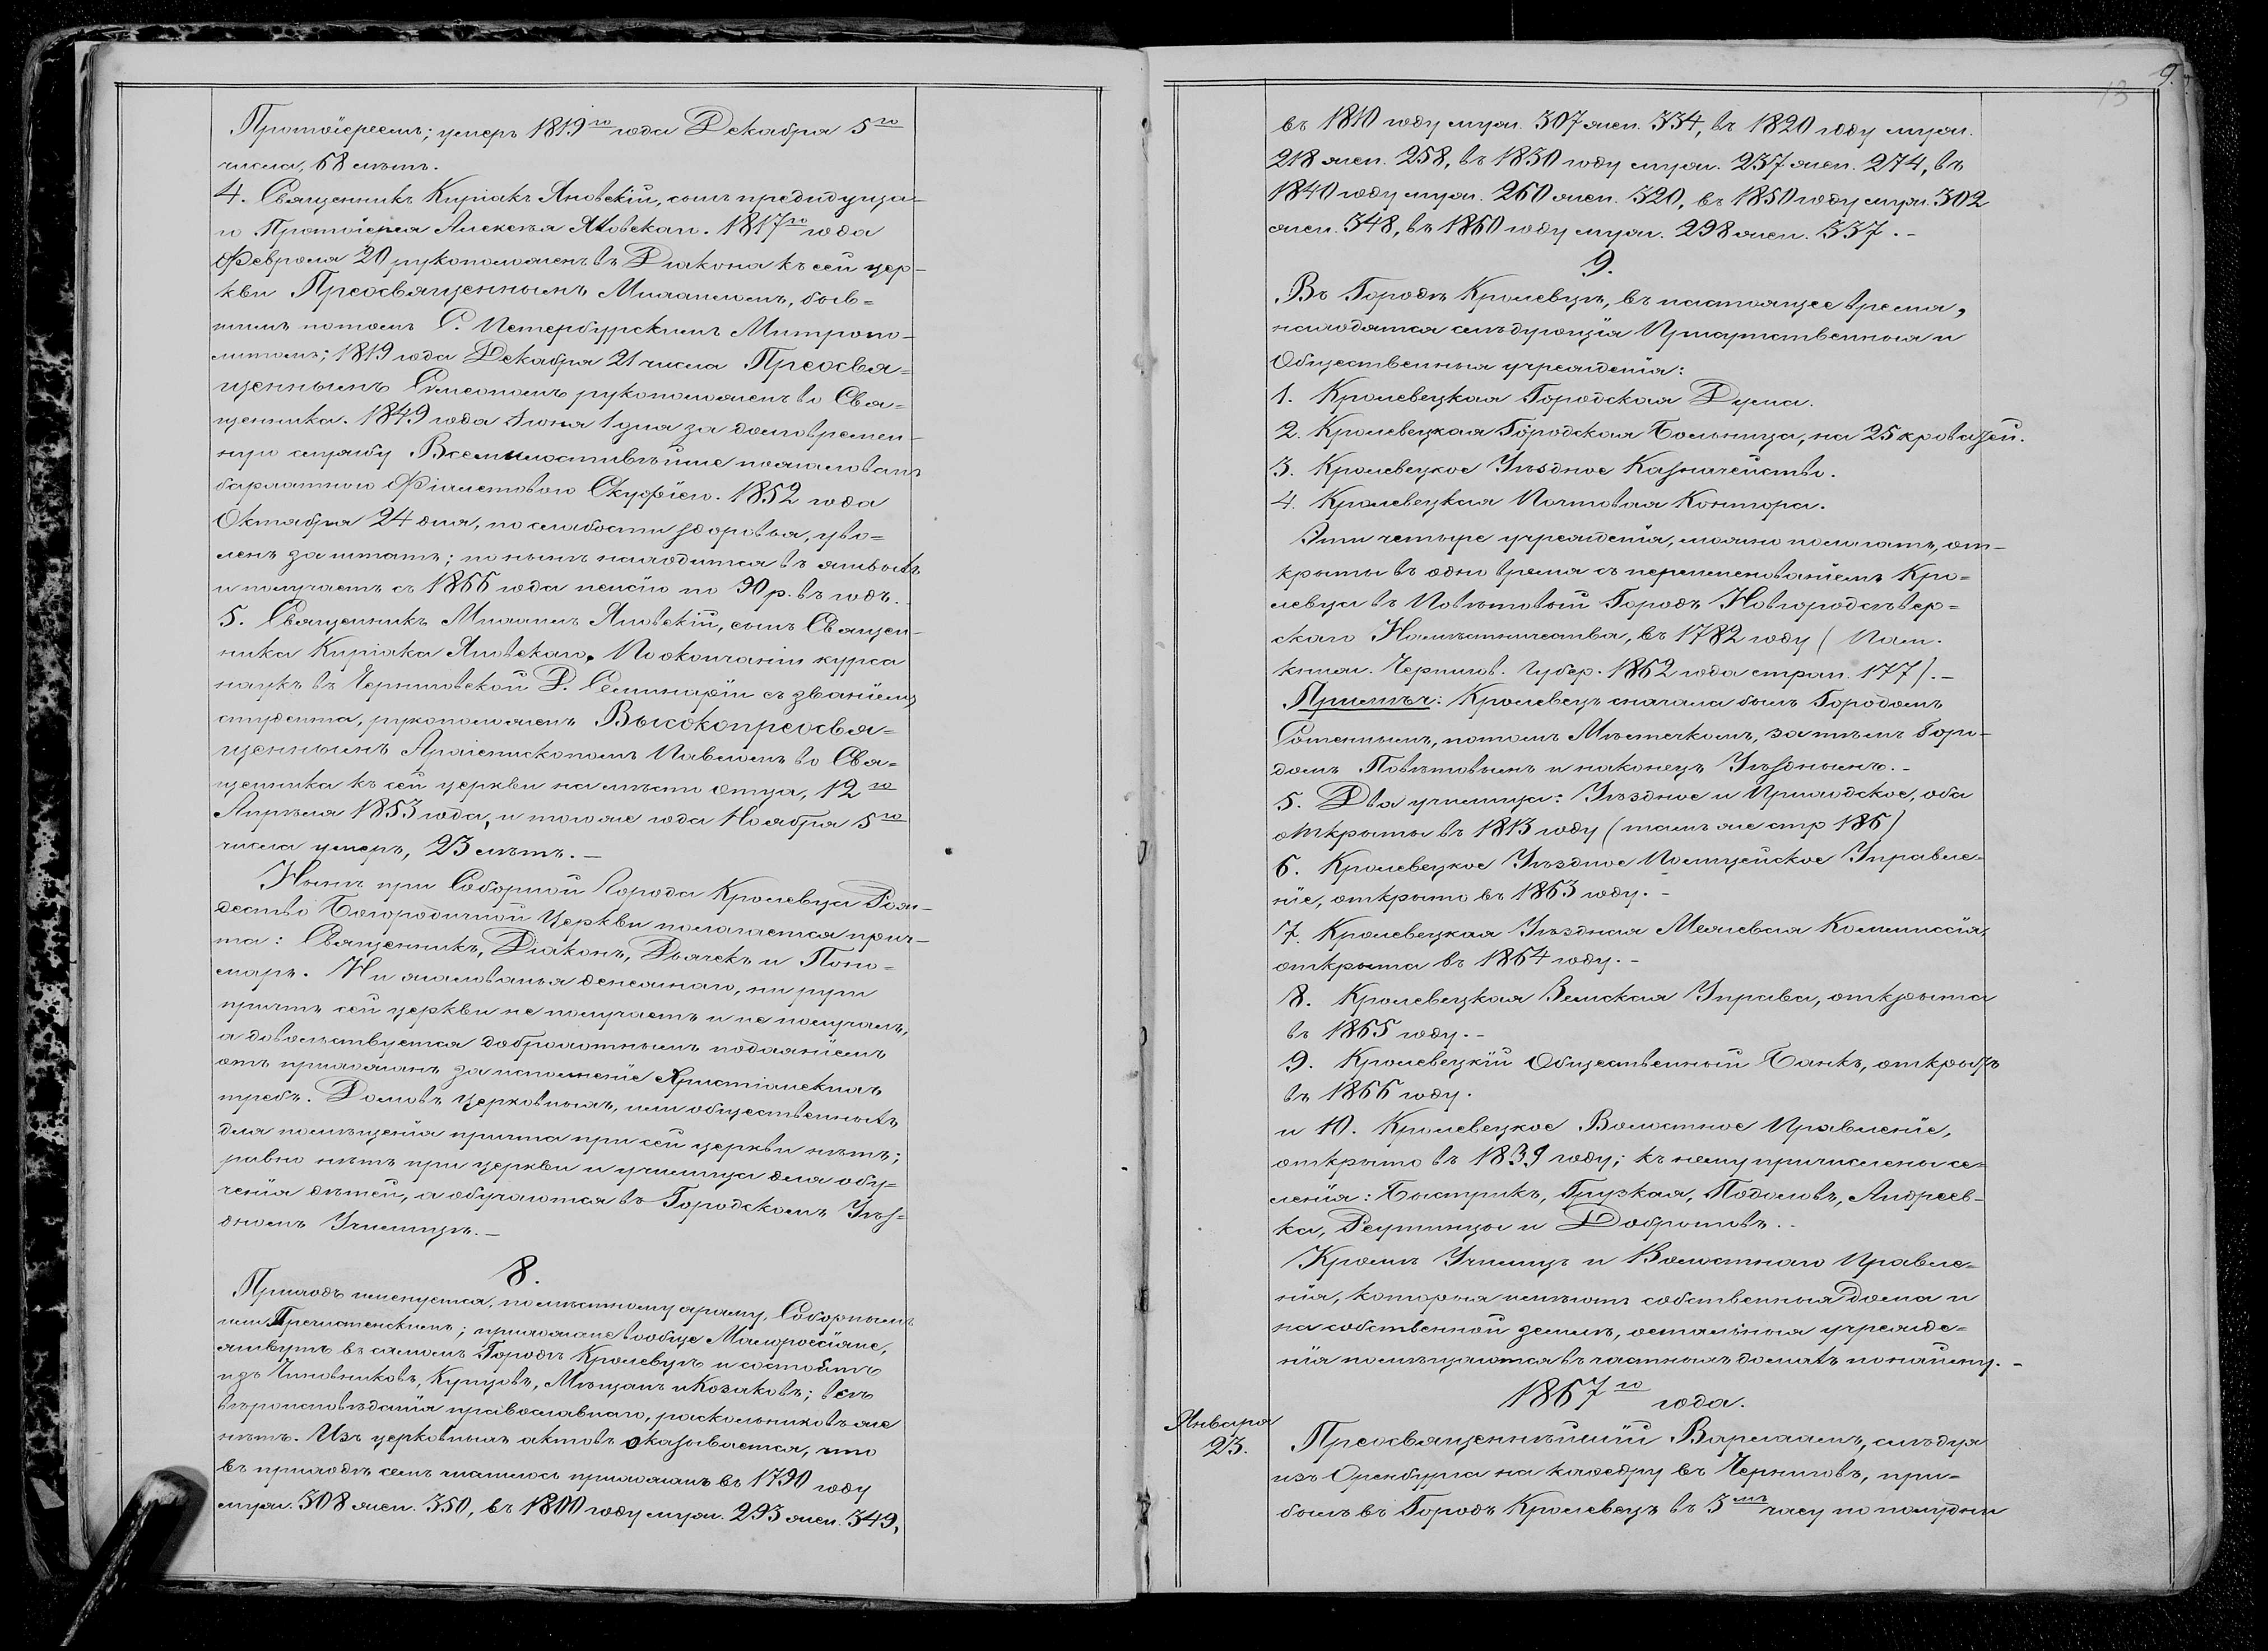 Протоіереемъ; умеръ 1819го года Декабря 5го
числа, 68 лѣтъ.
4. Священникъ Киріакъ Яновскій, сынъ предидуща-
го Протоіерея Алексѣя Яновскаго. 1817го года
Февраля 20 рукоположенъ въ Діакона къ сей цер-
кви Преосвященнымъ Михаиломъ, быв=
шимъ потомъ С. Петербурскимъ Митропо-
литомъ; 1819 года Декабря 21 числа Преосвя=
щеннымъ Симеономъ рукоположенъ во Свя=
щенника. 1849 года Іюня 1 дня за долговремен-
ную службу Всемилостивѣйше пожалованъ
бархатною Фіолетовою Скуфіею. 1852 года
Октября 24 дня, по слабости здоровья, уво=
ленъ за штатъ; но нынѣ находится въ живыхъ
и получаетъ съ 1866 года пенсію по 90 р. въ годъ.
5. Священникъ Михаилъ Яновскій, сынъ Священ-
ника Киріака Яновскаго. По окончаніи курса
наукъ въ Черниговской Д. Семинаріи съ званіемъ
студента, рукоположенъ Высокопреосвя=
щеннымъ Архіепископомъ Павломъ во Свя=
щенника къ сей церкви на мѣсто отца, 12го
Апрѣля 1853 года, и того же года Ноября 5го
числа умеръ, 23 лѣтъ. –
Нынѣ при Соборной Города Кролевца Рож-
дество Богородичной Церкви полагается прич-
та: Священникъ, Діаконъ, Дьячекъ и Поно=
марь. Ни жалованья денежнаго, ни руги
причтъ сей церкви не получаетъ и не получалъ,
а довольствуется доброхотнымъ подаяніемъ
отъ прихожанъ за исполненіе Христіанскихъ
требъ. Домовъ церковныхъ, или общественныхъ
для помѣщенія причта при сей церкви нѣтъ;
равно нѣтъ при церкви и училища для обу=
ченія дѣтей, а обучаются въ Городскомъ Уѣз=
дномъ Училищѣ. –
8.
Приходъ именуется, по мѣстному храму, Соборнымъ
или Пречистенскимъ; прихожане вообще Малороссіяне,
живутъ въ самомъ Городѣ Кролевцѣ и состоятъ
изъ Чиновниковъ, Купцовъ, Мѣщанъ и Козаковъ; всѣ
вѣроисповѣданія православнаго, раскольниковъ же
нѣтъ. Изъ церковныхъ актовъ оказывается, что
въ приходѣ семъ числилось прихожанъ въ 1790 году
муж. 308 жен. 350, въ 1800 году муж. 293 жен. 349,
9.
13
въ 1810 году муж. 307 жен. 334, въ 1820 году муж.
218 жен. 258, въ 1830 году муж. 237 жен. 274, въ
1840 году муж. 260 жен. 320, въ 1850 году муж. 302
жен. 348, въ 1860 году муж. 298 жен. 337. –
9.
Въ Городѣ Кролевцѣ, въ настоящее время,
находятся слѣдующія Присутственныя и
Общественныя учрежденія:
1. Кролевецкая Городская Дума.
2. Кролевецкая Городская Больница, на 25 кроватей.
3. Кролевецкое Уѣздное Казначейство.
4. Кролевецкая Почтовая Контора.
Эти четыре учрежденія, можно полагать, от-
крыты въ одно время съ переименованіемъ Кро=
левца въ Повѣтовый Городъ Новгородсѣвер=
скаго Намѣстничества, въ 1782 году (Пам.
книж. Чернигов. Губер. 1862 года стран. 177). –
Примѣч: Кролевецъ сначала былъ Городомъ
Сотеннымъ, потомъ Мѣстечкомъ, за тѣмъ Горо-
домъ Повѣтовымъ и наконецъ Уѣзднымъ. –
5. Два училища: Уѣздное и Приходское, оба
открыты въ 1813 году (тамъ же стр 186)
6. Кролевецкое Уѣздное Полицейское Управле-
ніе, открыто въ 1863 году. –
7. Кролевецкая Уѣздная Межевая Коммиссія,
открыта въ 1864 году. –
8. Кролевецкая Земская Управа, открыта
въ 1865 году. –
9. Кролевецкій Общественный Банкъ, открытъ
въ 1866 году.
и 10. Кролевецкое Волостное Правленіе,
открыто въ 1839 году; къ нему причислены се=
ленія: Быстрикъ, Грузкая, Подоловъ, Андреев-
ка, Реутинцы и Добротовъ. –
Кромѣ Училищъ и Волостнаго Правле=
нія, которыя имѣютъ собственныя дома и
на собственной землѣ, остальныя учрежде=
нія помѣщаются въ частныхъ домахъ по найму. –
1867го года.
Января
23.
Преосвященнѣйшій Варлаамъ, слѣдуя
изъ Оренбурга на каѳедру въ Черниговъ, при=
былъ въ Городъ Кролевецъ въ 3мъ часу по полудни